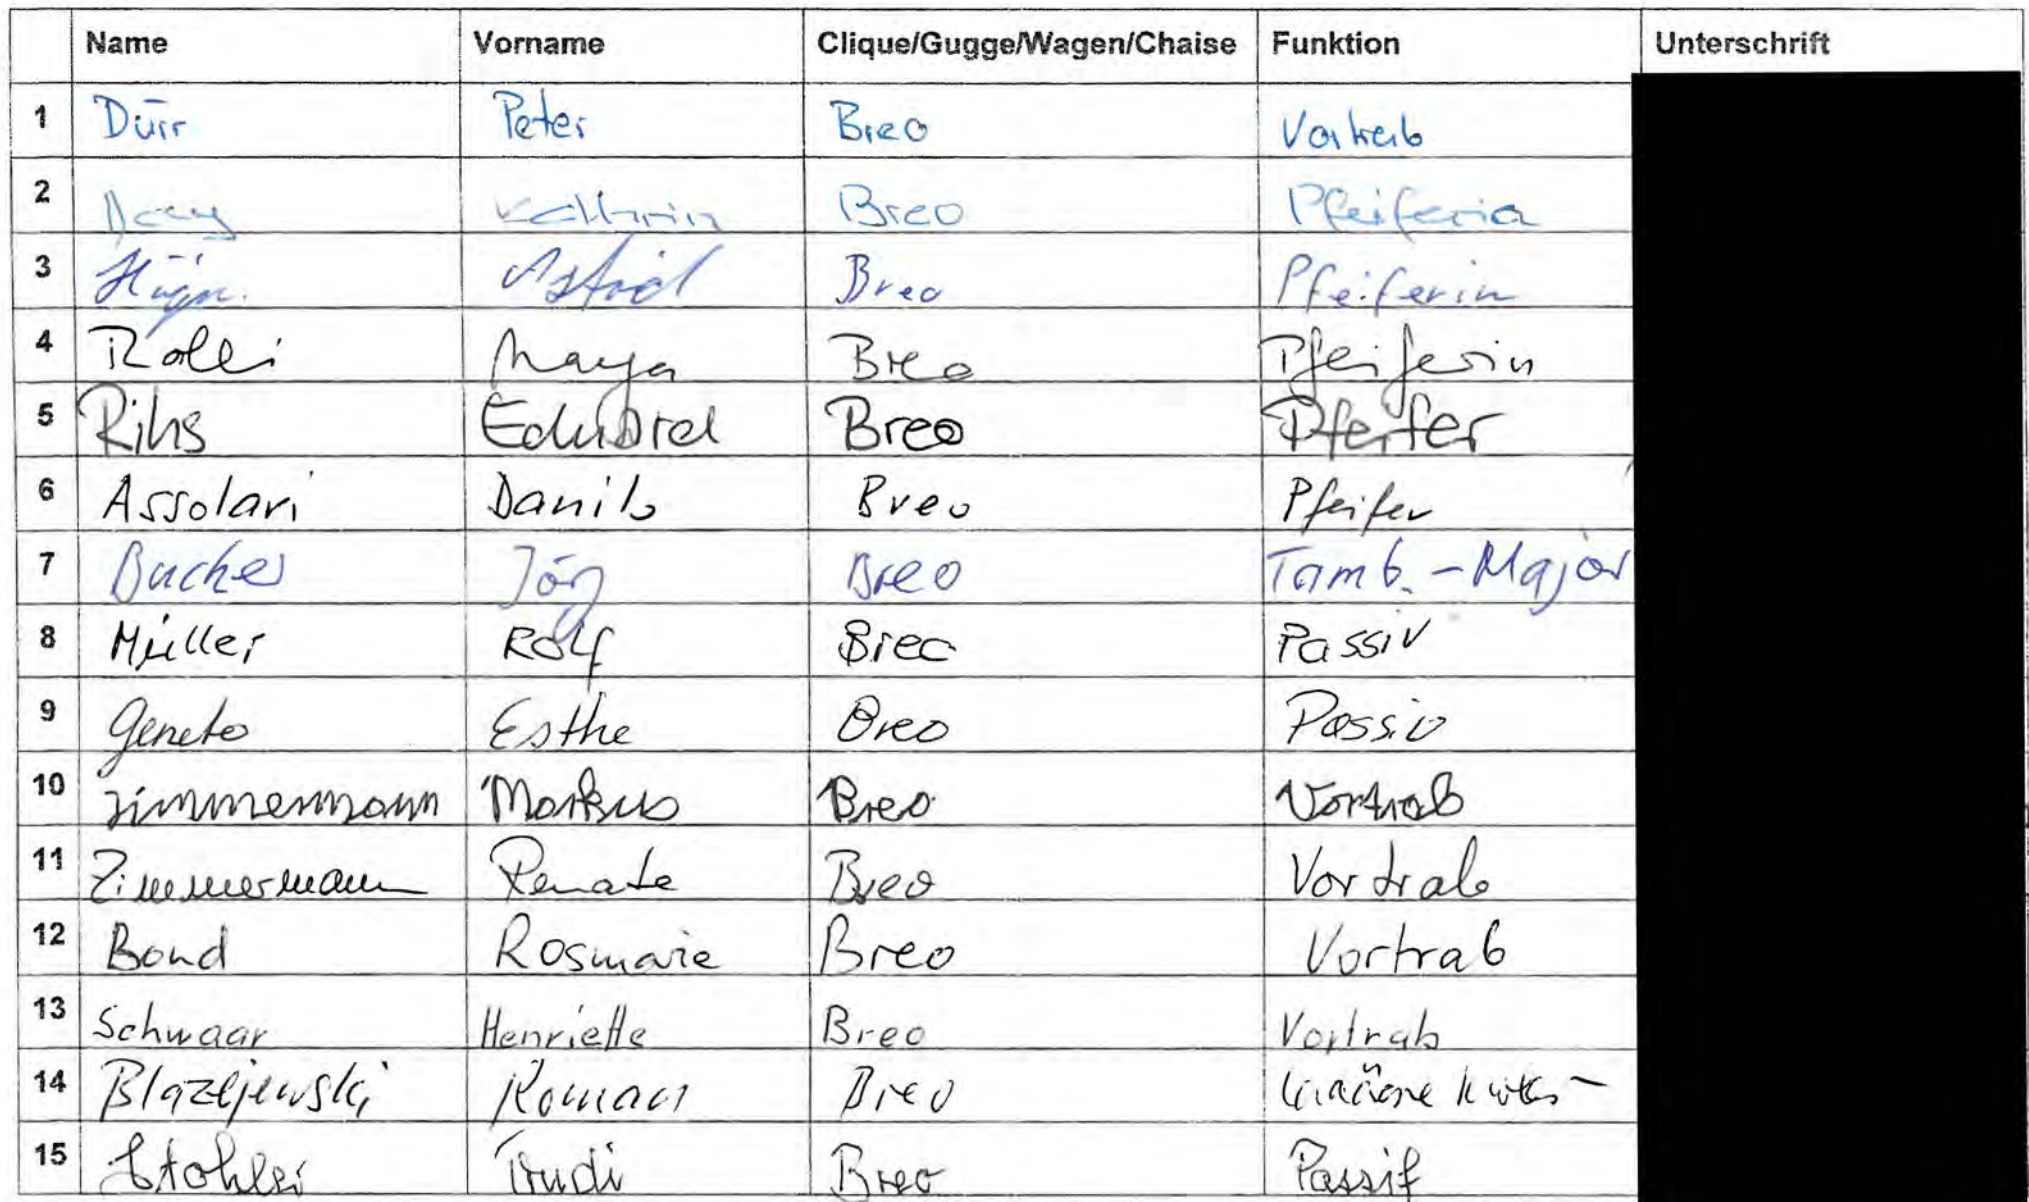 Name Vorname Clique/Gugge/Wagen/Chaise Funktion Unterschrift
1 Dürr Peter Breo Vortrab
2 Breo Pfeiferin
3 Astrid Breo Pfeiferin
4 Rolli Maya Breo Pfeiferin
5 Rihs Eduard Breo Pfeifer
6 Assolari Danilo Breo Pfeifer
7 Bucher Jörg Breo Tamb.-Major
8 Müller Rolf Breo Passiv
9 Esthe Breo Passiv
10 Zimmermann Markus Breo Vortrab
11 Zimmermann Renate Breo Vortrab
12 Bond Rosmarie Breo Vortrab
13 Schwaar Henriette Breo Vortrab
14 Blazejewski Roman Breo
15 Trudi Breo Passif